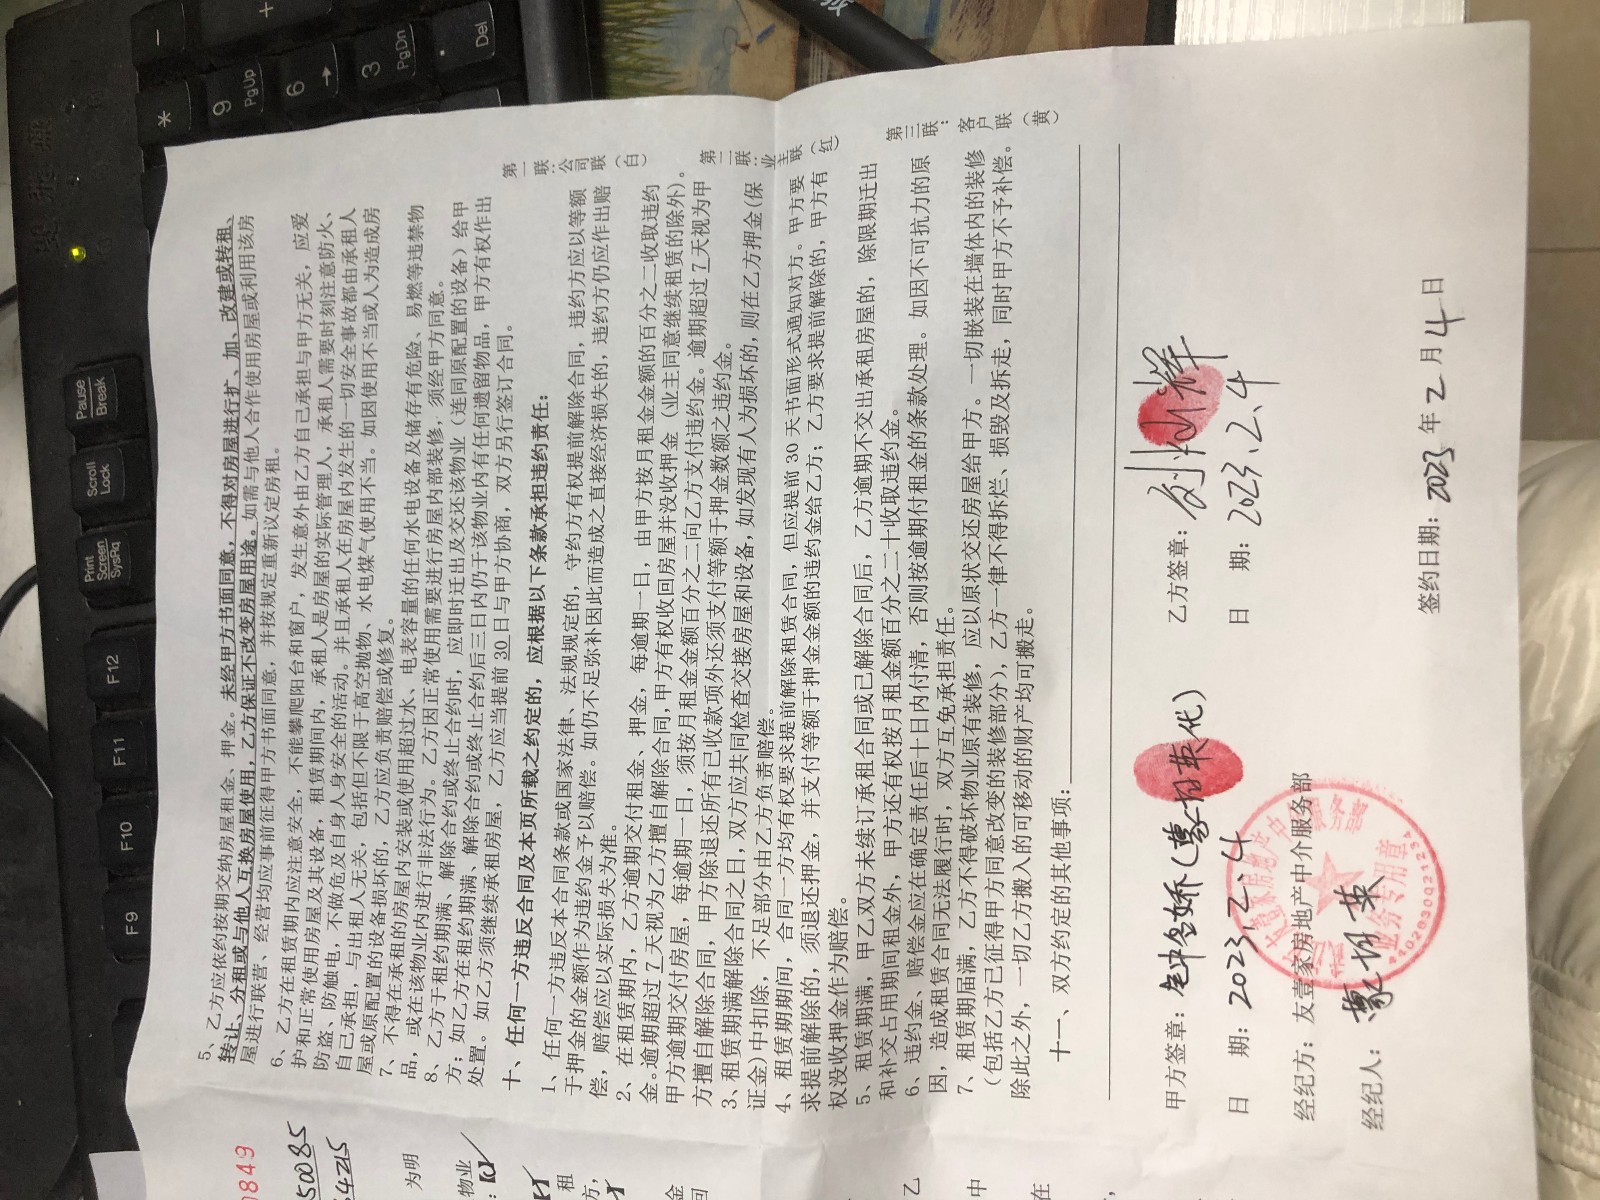 5、乙方应依约按期交纳房屋租金、押金。未经甲方书面同意，不得对房屋进行扩、加、改建或转租、
转让、分租或与他人互换房屋使用，乙方保证不改变房屋用途。如需与他人合作使用房屋或利用该房
屋进行联营、经营均应事前征得甲方书面同意，并按规定重新议定房租。
6、乙方在租赁期内应注意安全，不能攀爬阳台和窗户，发生意外由乙方自己承担与甲方无关，应爱
护和正常使用房屋及其设备，租赁期间内，承租人是房屋的实际管理人，承租人需要时刻注意防火、
防盗、防触电，不做危及自身人身安全的活动。并且承租人在房屋内发生的一切安全事故都由承租人
自己承担，与出租人无关，包括但不限于高空抛物、水电煤气使用不当。如因使用不当或人为造成房
屋或原配置的设备损坏的，乙方应负责赔偿或修复。
7、不得在承租的房屋内安装或使用超过水、电表容量的任何水电设备及储存有危险、易燃等违禁物
品，或在该物业内进行非法行为。乙方因正常使用需要进行房屋内部装修，须经甲方同意。
8、乙方于租约期满、解除合约或终止合约时，应即时迁出及交还该物业（连同原配置的设备）给甲
方；如乙方在租约期满、解除合约或终止合约后三日内仍于该物业内有任何遗留物品，甲方有权作出
处置。如乙方须继续承租房屋，乙方应当提前 30 日与甲方协商，双方另行签订合同。
十、任何一方违反合同及本页所载之约定的，应根据以下条款承担违约责任：
1、任何一方违反本合同条款或国家法律、法规规定的，守约方有权提前解除合同，违约方应以等额
于押金的金额作为违约金予以赔偿。如仍不足弥补因此而造成之直接经济损失的，违约方仍应作出赔
偿，赔偿应以实际损失为准。
2、在租赁期内，乙方逾期交付租金、押金，每逾期一日，由甲方按月租金金额的百分之二收取违约
金。逾期超过 7 天视为乙方擅自解除合同，甲方有权收回房屋并没收押金（业主同意继续租赁的除外）。
甲方逾期交付房屋，每逾期一日，须按月租金金额百分之二向乙方支付违约金。逾期超过 7 天视为甲
方擅自解除合同，甲方除退还所有已收款项外还须支付等额于押金数额之违约金。
3、租赁期满解除合同之日，双方应共同检查交接房屋和设备，如发现有人为损坏的，则在乙方押金（保
证金）中扣除，不足部分由乙方负责赔偿。
4、租赁期期间，合同一方均有权要求提前解除租赁合同，但应提前 30 天书面形式通知对方。甲方要
求提前解除的，须退还押金，并支付等额于押金金额的违约金给乙方；乙方要求提前解除的，甲方有
权没收押金作为赔偿。
5、租赁期满，甲乙双方未续订承租合同或已解除合同后，乙方逾期不交出承租房屋的，除限期迁出
和补交占用期间租金外，甲方还有权按月租金额百分之二十收取违约金。
6、违约金、赔偿金应在确定责任后十日内付清，否则按逾期付租金的条款处理。如因不可抗力的原
因，造成租赁合同无法履行时，双方互免承担责任。
7、租赁期届满，乙方不得破坏物业原有装修，应以原状交还房屋给甲方。一切嵌装在墙体内的装修
（包括乙方已征得甲方同意改变的装修部分），乙方一律不得拆烂、损毁及拆走，同时甲方不予补偿。
除此之外，一切乙方搬入的可移动的财产均可搬走。
十一、双方约定的其他事项：
第一联：公司联（白）
第二联：业主联（红）
第三联：客户联（黄）
甲方签章：
乙方签章：
日 期：2023.2.4
日 期：2023.2.4
经纪方：友壹家房地产中介服务部
经纪人：
签约日期：2023 年 2 月 4 日
业务专用章
0849
50085
64215
为明
物业
租
方，
金
乙
中
在
Print Screen SysRq
Scroll Lock
Pause Break
F9
F10
F11
F12
*
-
9 PgUp
6
3 PgDn
+
. Del